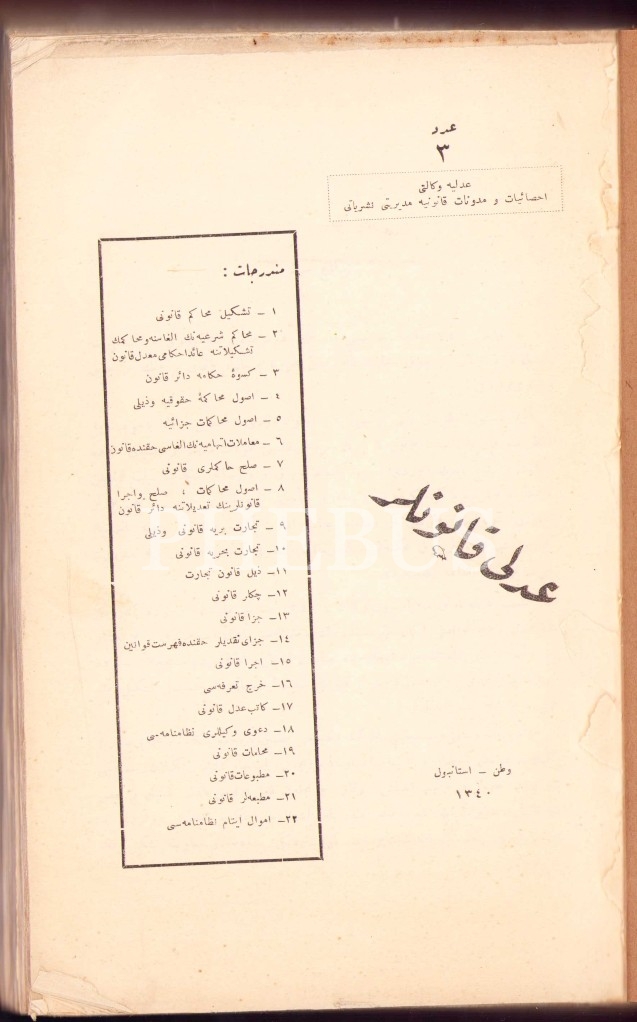 عدد
٣
عدلیه وکالتی
احصائیات و مدونات قانونیه مدیریتی نشریاتی
مندرجات :
١ – تشکیل محاکم قانونی
٢ – محاکم شرعیه‌نك الغاسنه ومحاکمك
تشکیلاتنه عائد احکامی معدل قانون
٣ – کسوهٔ حکامه دائر قانون
٤ – اصول محاکمهٔ حقوقیه وذیلی
٥ – اصول محاکمات جزائیه
٦ – معاملات اتهامیه‌نك الغاسی حقنده قانون
٧ – صلح حاکملری قانونی
٨ – اصول محاکمات ؛ صلح واجرا
قانونلرینك تعدیلاتنه دائر قانون
٩ – تجارت بریه قانونی وذیلی
١٠– تجارت بحریه قانونی
١١– ذیل قانون تجارت
١٢– چکلر قانونی
١٣– جزا قانونی
١٤– جزای نقدیلر حقنده فهرست قوانین
١٥– اجرا قانونی
١٦– خرج تعرفه‌سی
١٧– کاتب عدل قانونی
١٨– دعوی وکیللری نظامنامه‌سی
١٩– محامات قانونی
٢٠– مطبوعات قانونی
٢١– مطبعه‌لر قانونی
٢٢– اموال ایتام نظامنامه‌سی
عدلی قانونلر
وطن – استانبول
١٣٤٠
PHEBUS